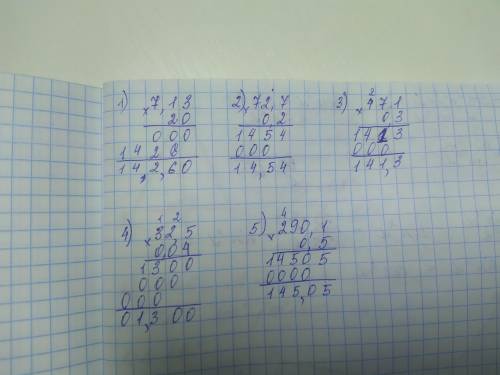 1) ×7,13
20
000
1426
14,2,60
2) ×72,7
0,2
1454
000
14,54
3) 2
×471
0,3
1413
000
141,3
4) 1 2
×325
0,04
1300
000
000
01,300
5) 4
×290,1
0,5
14505
0000
145,05